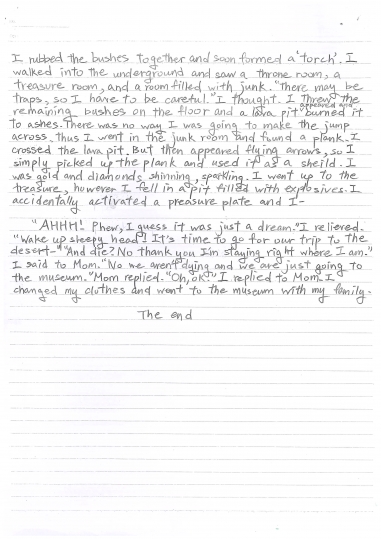 I rubbed the bushes together and soon formed a 'torch'. I
walked into the underground and saw a throne room, a
treasure room, and a room filled with junk. "There may be
traps, so I have to be careful." I thought. I threw the
remaining bushes on the floor and a lava pit appeared and burned it
to ashes. There was no way I was going to make the jump
across, thus I went in the junk room and found a plank. I
crossed the lava pit. But then appeared flying arrows, so I
simply picked up the plank and used it as a sheild. I
was gold and diamonds shinning, sparkling. I went up to the
treasure, however I fell in a pit filled with explosives. I
accidentally activated a preasure plate and I-
"AHHH! Phew, I guess it was just a dream." I relieved.
"Wake up sleepy head! It's time to go for our trip to the
desert-" "And die? No thank you I'm staying right where I am."
I said to Mom. "No we aren't dying and we are just going to
the museum." Mom replied. "Oh, ok!" I replied to Mom. I
changed my clothes and went to the museum with my family.
The end